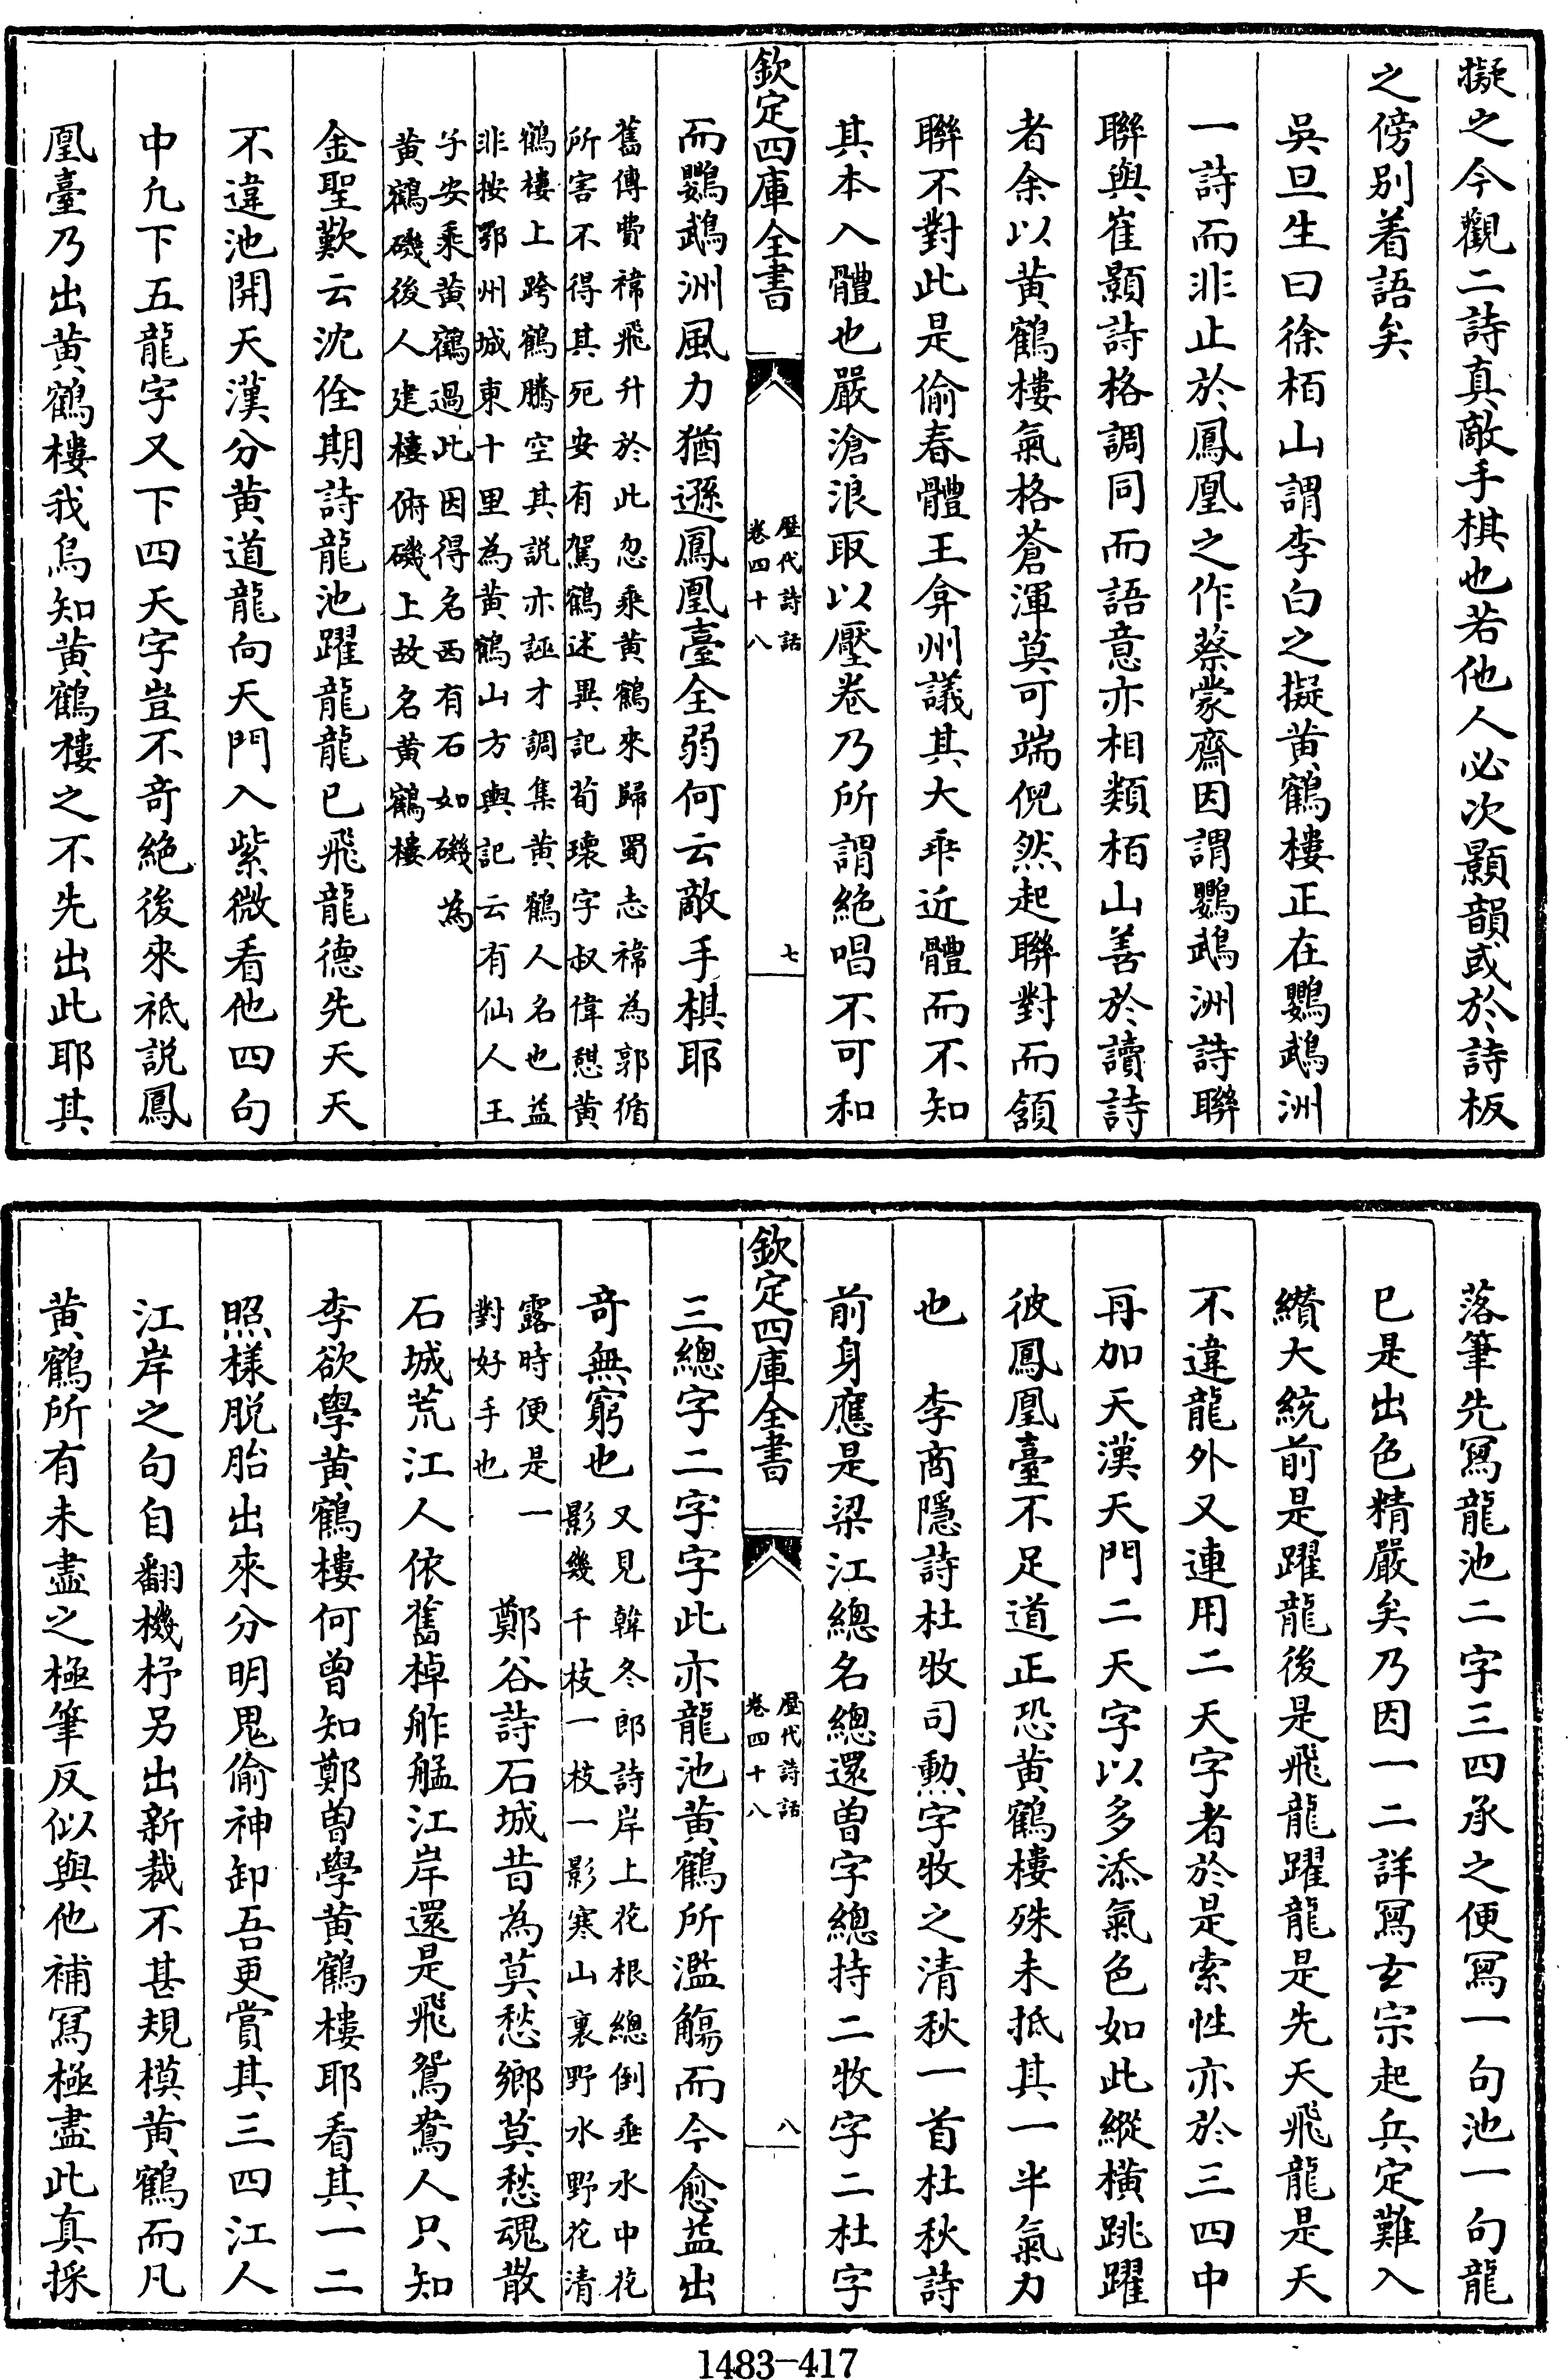 擬之今觀二詩真敵手棋也若他人必次顥韻或於詩板
之傍别着語矣
吳旦生曰徐栢山謂李白之擬黄鶴樓正在鸚鵡洲
一詩而非止於鳳凰之作蔡蒙齋因謂鸚鵡洲詩聯
聯與崔顥詩格調同而語意亦相類栢山善於讀詩
者余以黄鶴樓氣格蒼渾莫可端倪然起聯對而頷
聯不對此是偷春體王弇州議其大乖近體而不知
其本入體也嚴滄浪取以壓卷乃所謂絶唱不可和
欽定四庫全書
歴代詩話
卷四十八
七
而鸚鵡洲風力猶遜鳳凰臺全弱何云敵手棋耶
舊傳費禕飛升於此忽乘黄鶴來歸蜀志禕為郭循
所害不得其死安有駕鶴述異記荀瓌字叔偉憇黄
鶴樓上跨鶴騰空其説亦誣才調集黄鶴人名也益
非按鄂州城東十里為黄鶴山方輿記云有仙人王
子安乘黄鶴過此因得名西有石如磯為
黄鶴磯後人建樓俯磯上故名黄鶴樓
金聖歎云沈佺期詩龍池躍龍龍已飛龍德先天天
不違池開天漢分黄道龍向天門入紫微看他四句
中凢下五龍字又下四天字豈不竒絶後來祗説鳳
凰臺乃出黄鶴樓我烏知黄鶴樓之不先出此耶其
落筆先冩龍池二字三四承之便冩一句池一句龍
已是出色精嚴矣乃因一二詳冩玄宗起兵定難入
纉大統前是躍龍後是飛龍躍龍是先天飛龍是天
不違龍外又連用二天字者於是索性亦於三四中
再加天漢天門二天字以多添氣色如此縱橫跳躍
彼鳳凰臺不足道正恐黄鶴樓殊未抵其一半氣力
也　李商隱詩杜牧司勲字牧之清秋一首杜秋詩
前身應是梁江總名總還曾字總持二牧字二杜字
欽定四庫全書
歴代詩話
卷四十八
八
三總字二字字此亦龍池黄鶴所濫觴而今愈益出
竒無窮也
又見韓冬郎詩岸上花根總倒垂水中花
影幾千枝一枝一影寒山裏野水野花清
露時便是一
對好手也
鄭谷詩石城昔為莫愁鄉莫愁魂散
石城荒江人依舊棹舴艋江岸還是飛鴛鴦人只知
李欲學黄鶴樓何曾知鄭曾學黄鶴樓耶看其一二
照樣脱胎出來分明鬼偷神卸吾更賞其三四江人
江岸之句自翻機杼另出新裁不甚規模黄鶴而凡
黄鶴所有未盡之極筆反似與他補冩極盡此真採
1483-417